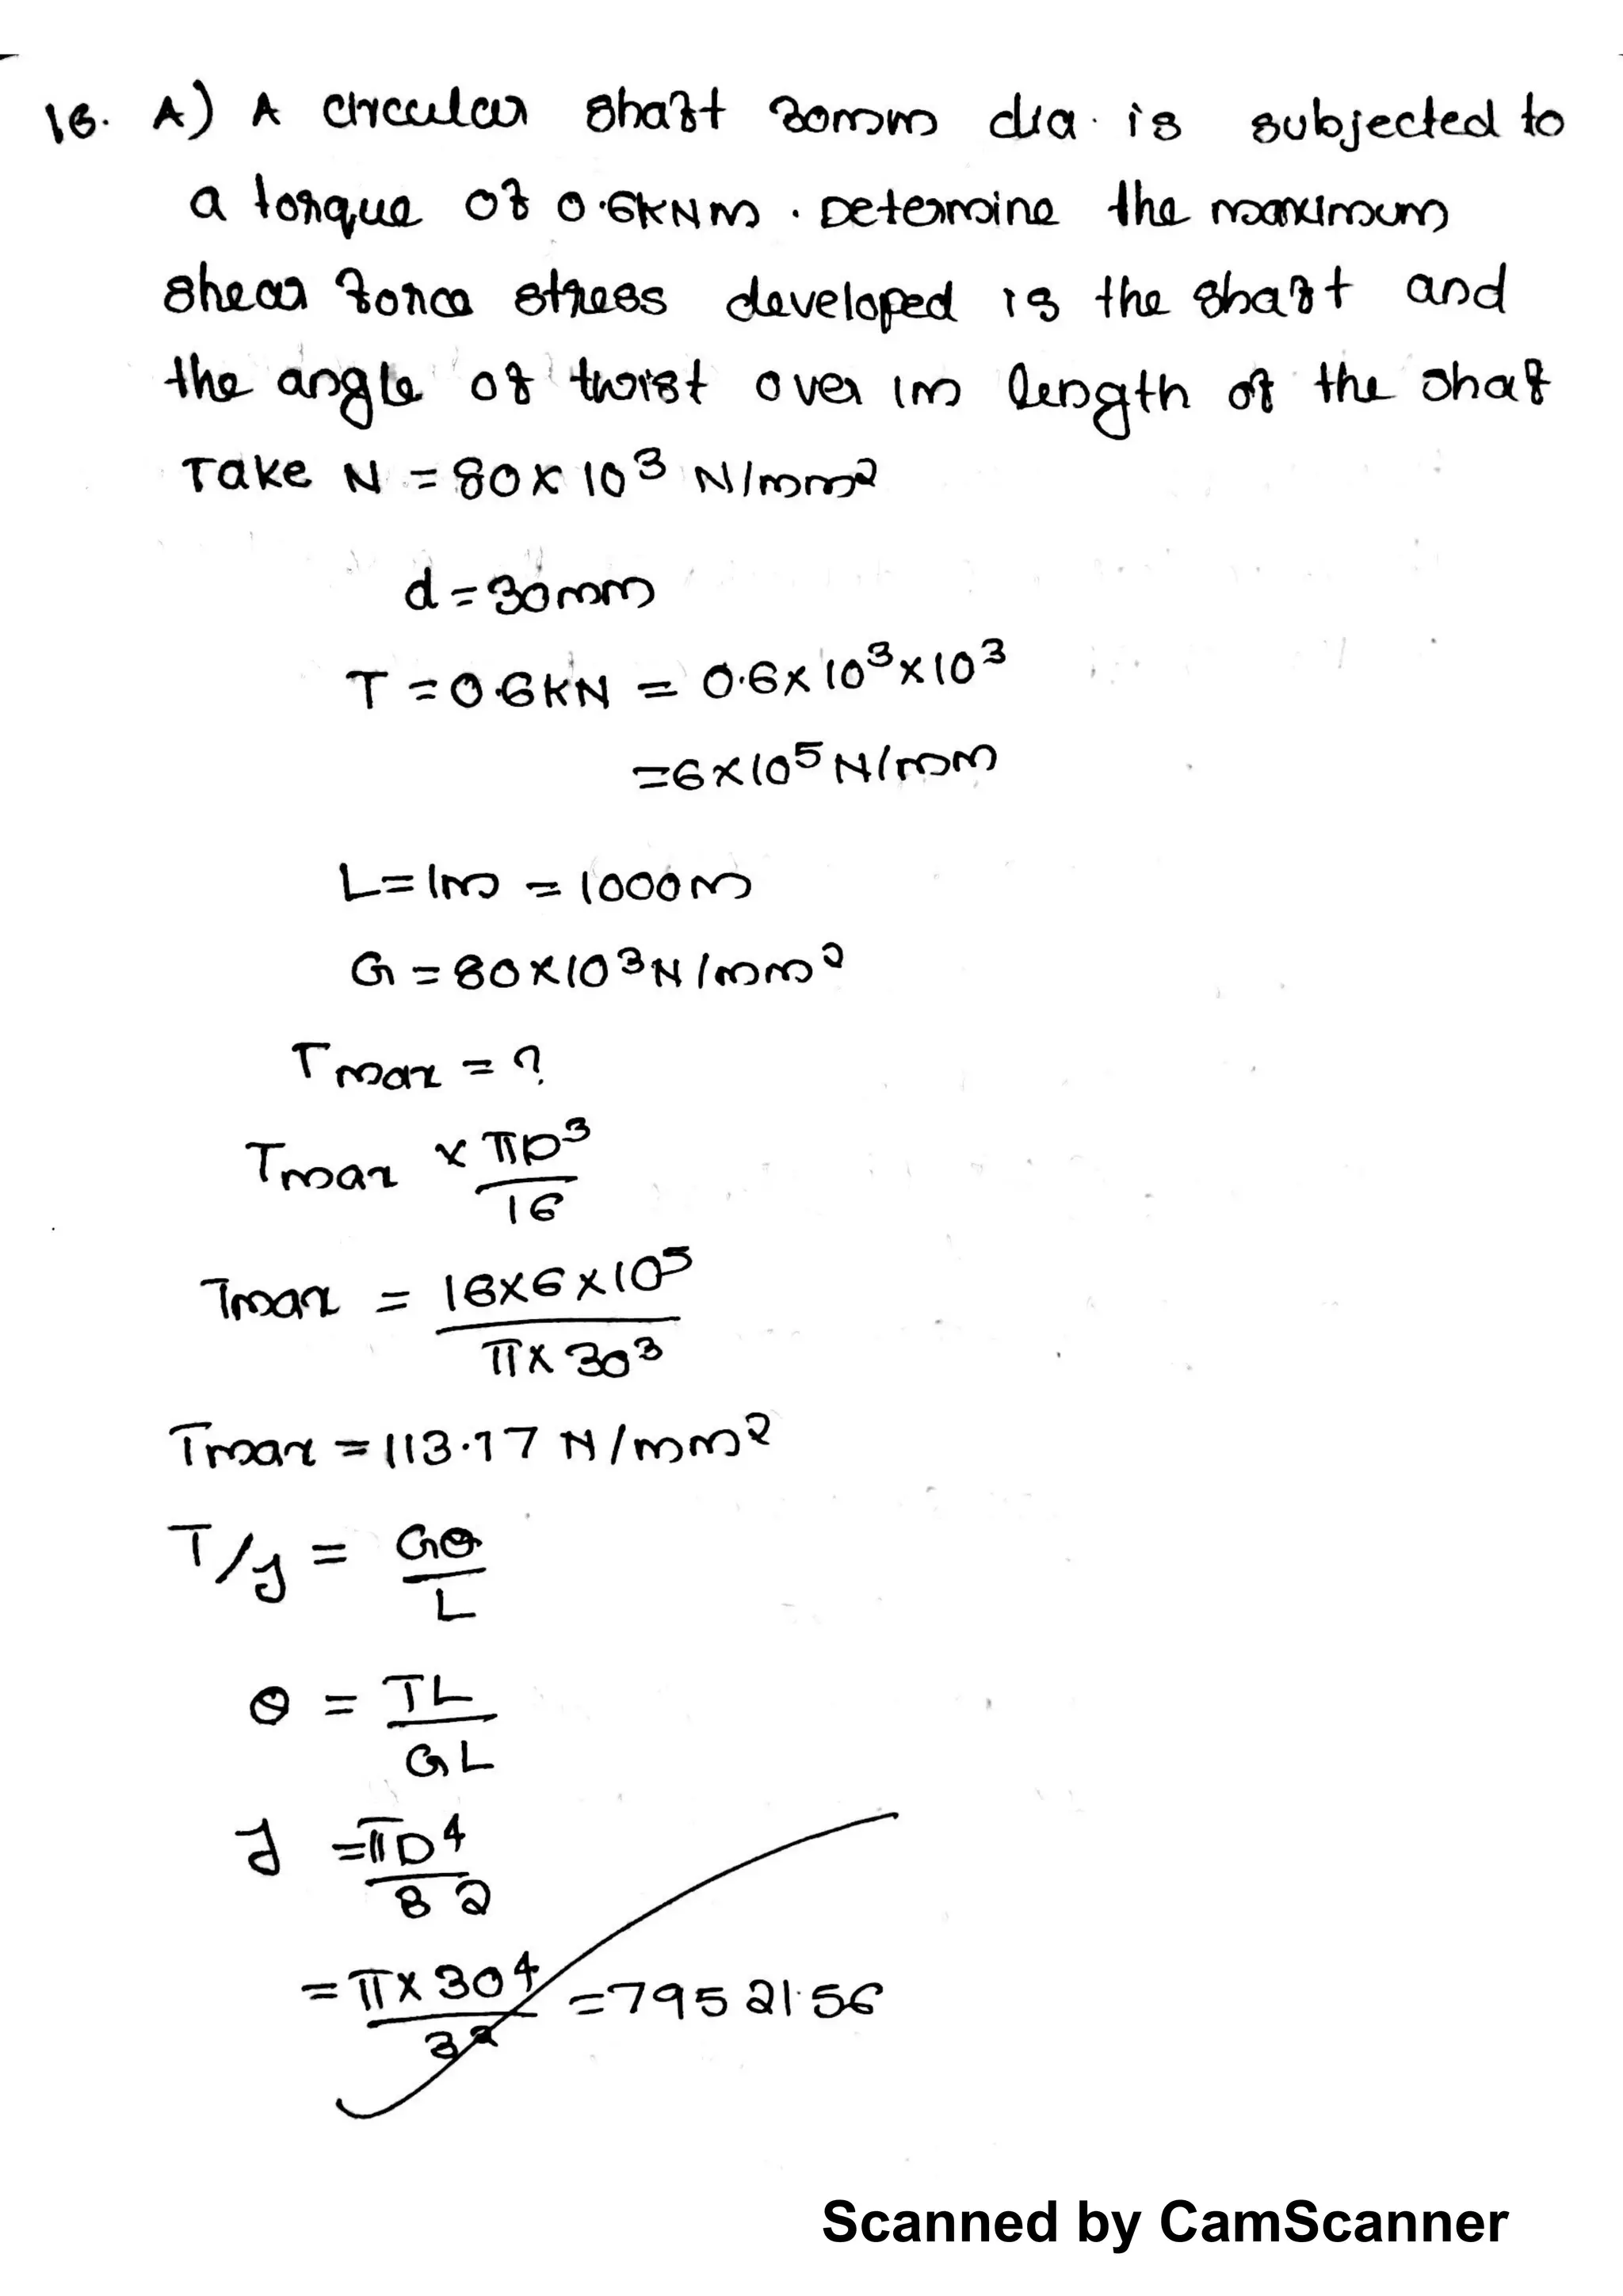 16. A) A circular shaft 30mm dia. is subjected to
a torque of 0.6KNm. Determine the maximum
shear force stress developed is the shaft and
the angle of twist over 1m length of the shaf
Take N = 80×10³ N/mm²
d=30mm
T =0.6KN = 0.6×10³×10³
=6×10⁵ N/mm
L=1m = 1000m
G =80×10³N/mm²
Tmax = ?
Tmax × πD³/16
Tmax = 16×6×10⁵/π×30³
Tmax =113.17 N/mm²
T/J = Gθ/L
θ = TL/GL
J =πD⁴/82
=π×30⁴/32 =79521.56
Scanned by CamScanner